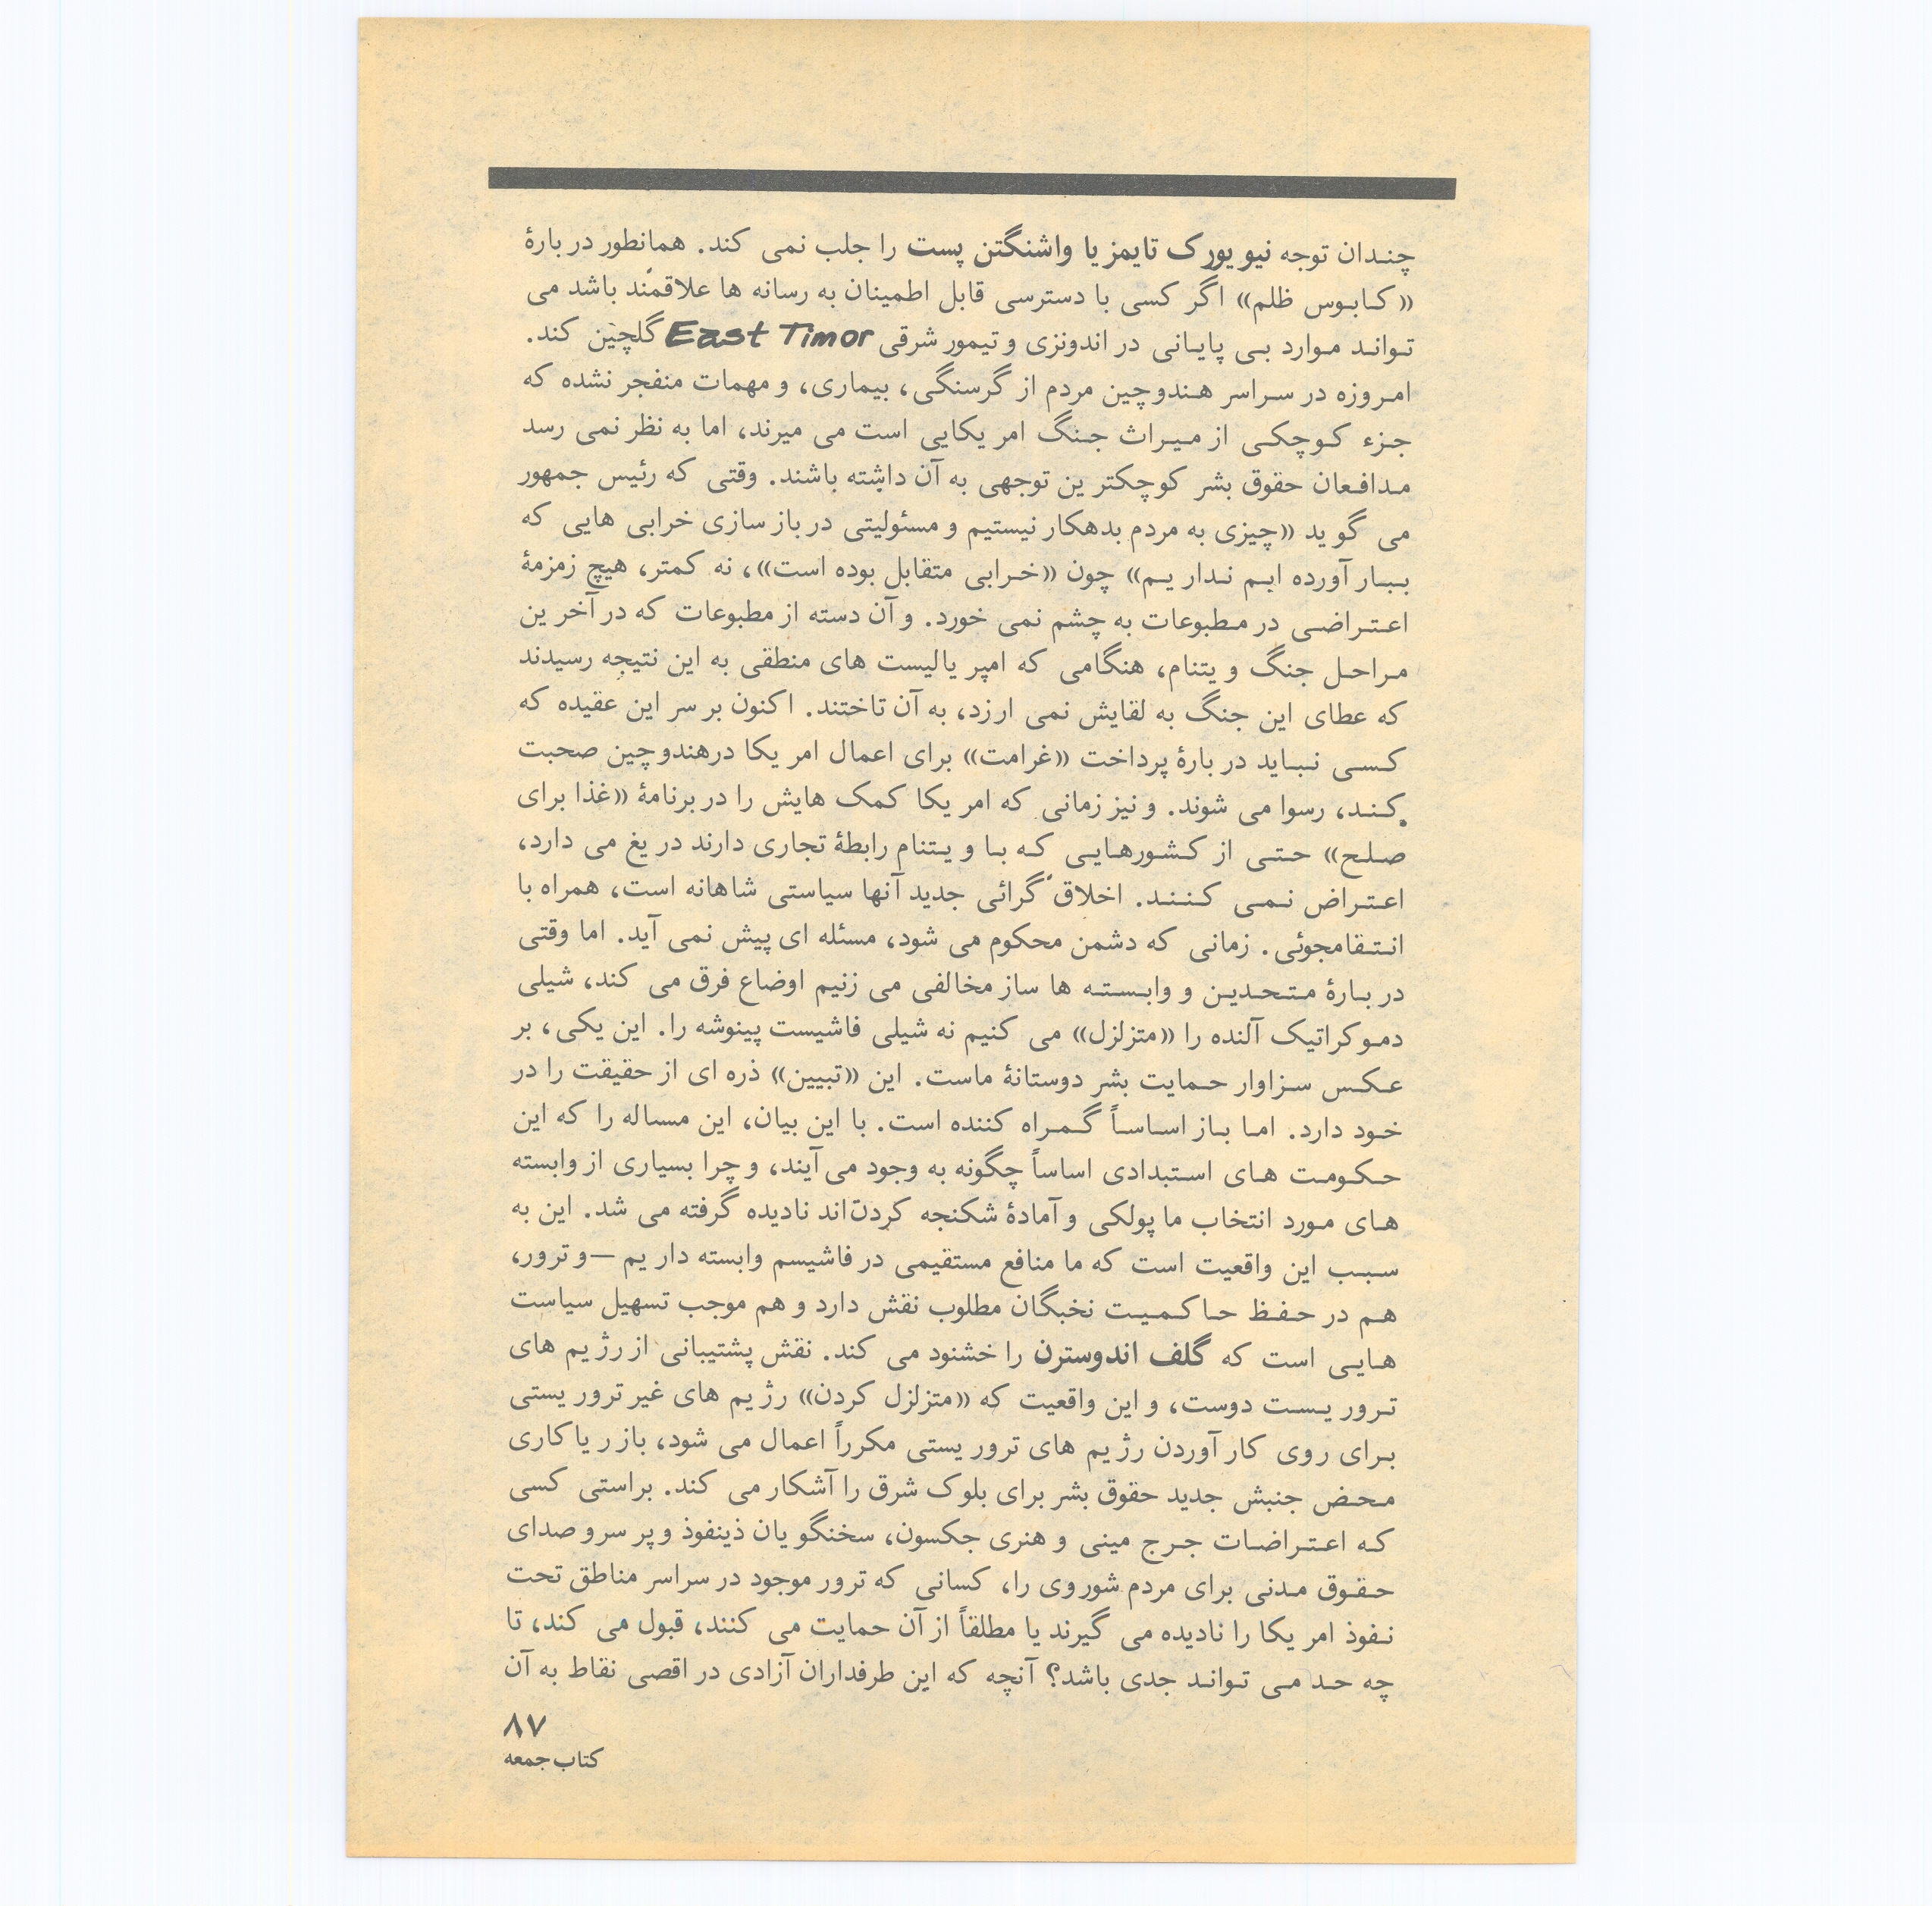 چندان توجه نیویورک تایمز یا واشنگتن پست را جلب نمی کند. همانطور در بارهٔ
«کابوس ظلم» اگر کسی با دسترسی قابل اطمینان به رسانه ها علاقمند باشد می
تواند موارد بی پایانی در اندونزی و تیمور شرقی East Timor گلچین کند.
امروزه در سراسر هندوچین مردم از گرسنگی، بیماری، و مهمات منفجر نشده که
جزء کوچکی از میراث جنگ امریکایی است می میرند، اما به نظر نمی رسد
مدافعان حقوق بشر کوچکترین توجهی به آن داشته باشند. وقتی که رئیس جمهور
می گوید «چیزی به مردم بدهکار نیستیم و مسئولیتی در باز سازی خرابی هایی که
ببار آورده ایم نداریم» چون «خرابی متقابل بوده است»، نه کمتر، هیچ زمزمهٔ
اعتراضی در مطبوعات به چشم نمی خورد. و آن دسته از مطبوعات که در آخرین
مراحل جنگ ویتنام، هنگامی که امپریالیست های منطقی به این نتیجه رسیدند
که عطای این جنگ به لقایش نمی ارزد، به آن تاختند. اکنون بر سر این عقیده که
کسی نباید در بارهٔ پرداخت «غرامت» برای اعمال امریکا درهندوچین صحبت
کند، رسوا می شوند. و نیز زمانی که امریکا کمک هایش را در برنامهٔ «غذا برای
صلح» حتی از کشورهایی که با ویتنام رابطهٔ تجاری دارند دریغ می دارد،
اعتراض نمی کنند. اخلاق گرائی جدید آنها سیاستی شاهانه است، همراه با
انتقامجوئی. زمانی که دشمن محکوم می شود، مسئله ای پیش نمی آید. اما وقتی
در بارهٔ متحدین و وابسته ها ساز مخالفی می زنیم اوضاع فرق می کند، شیلی
دموکراتیک آلنده را «متزلزل» می کنیم نه شیلی فاشیست پینوشه را. این یکی، بر
عکس سزاوار حمایت بشر دوستانهٔ ماست. این «تبیین» ذره ای از حقیقت را در
خود دارد. اما باز اساساً گمراه کننده است. با این بیان، این مساله را که این
حکومت های استبدادی اساساً چگونه به وجود می آیند، و چرا بسیاری از وابسته
های مورد انتخاب ما پولکی و آمادهٔ شکنجه کردن‌اند نادیده گرفته می شد. این به
سبب این واقعیت است که ما منافع مستقیمی در فاشیسم وابسته داریم —و ترور،
هم در حفظ حاکمیت نخبگان مطلوب نقش دارد و هم موجب تسهیل سیاست
هایی است که گلف اندوسترن را خشنود می کند. نقش پشتیبانی از رژیم های
تروریست دوست، و این واقعیت که «متزلزل کردن» رژیم های غیر تروریستی
برای روی کار آوردن رژیم های تروریستی مکرراً اعمال می شود، باز ریاکاری
محض جنبش جدید حقوق بشر برای بلوک شرق را آشکار می کند. براستی کسی
که اعتراضات جرج مینی و هنری جکسون، سخنگویان ذینفوذ و پر سر و صدای
حقوق مدنی برای مردم شوروی را، کسانی که ترور موجود در سراسر مناطق تحت
نفوذ امریکا را نادیده می گیرند یا مطلقاً از آن حمایت می کنند، قبول می کند، تا
چه حد می تواند جدی باشد؟ آنچه که این طرفداران آزادی در اقصی نقاط به آن
۸۷
کتاب جمعه